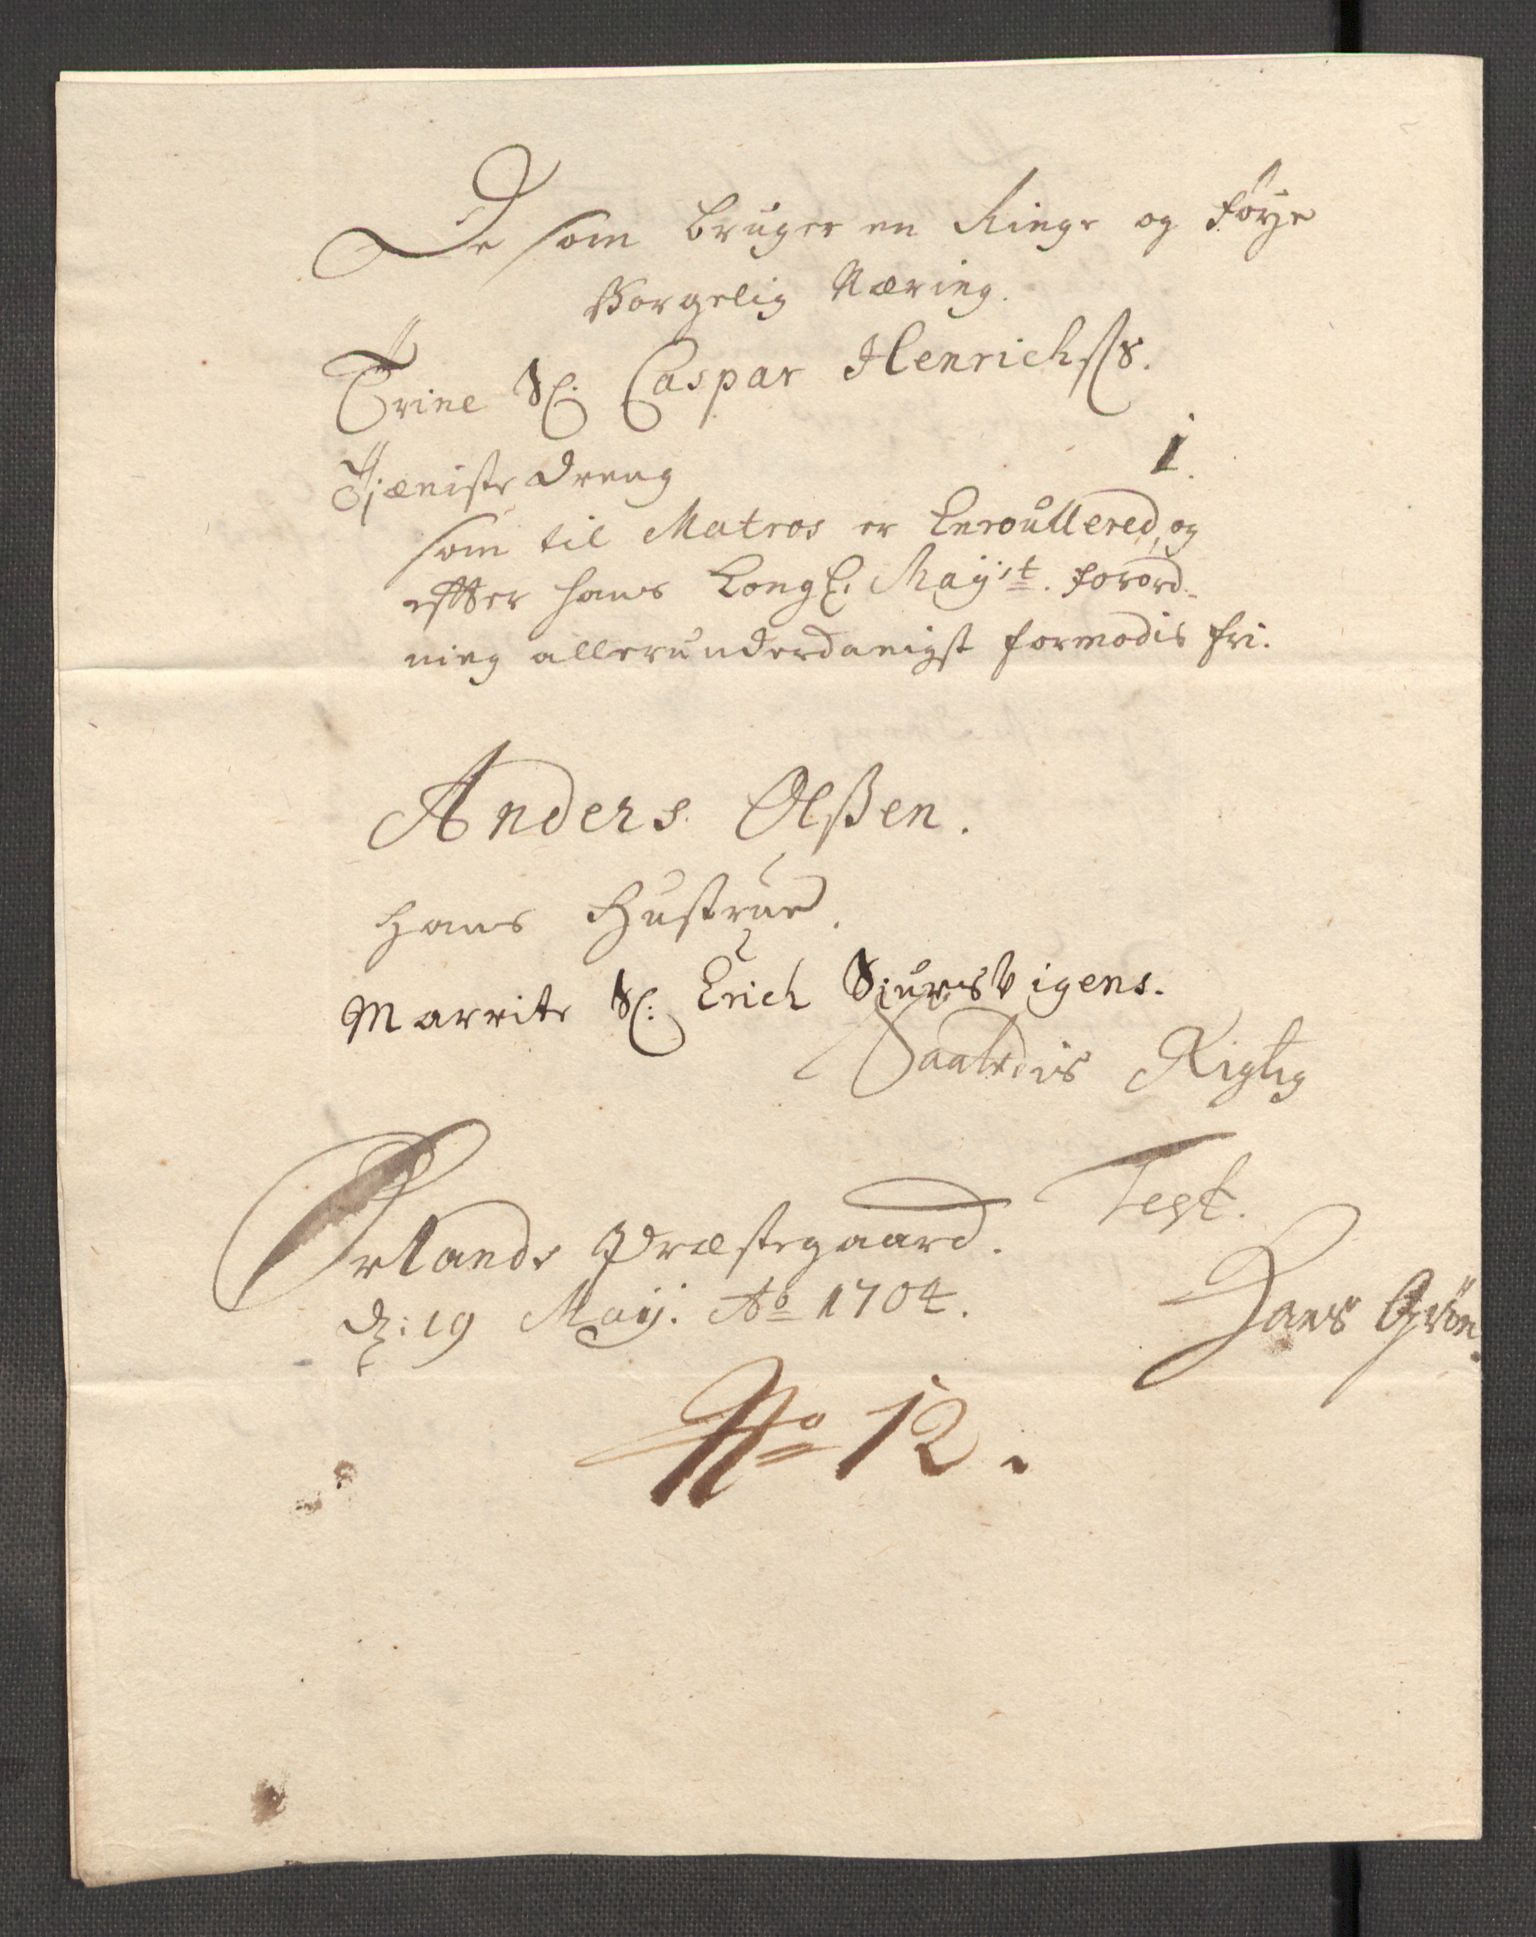 De som bruger en Ringe og føÿe
Borgelig Næring.
Trine Sl: Caspar Henrichss.
Tjæniste dreng 1.
som til Matros er Enroullered, og
effter hans Kongl. Maÿst. forord-
ning allerunderdanigst formodis fri.
Anders Olßen.
hans Hustrue.
Marrite Sl: Erich Siursvigens.
Saaledis Rigtig
Test.
Ørlands Præstegaard.
d: 19 Maij. Ao 1704.
Hans Grøn.
No 12.